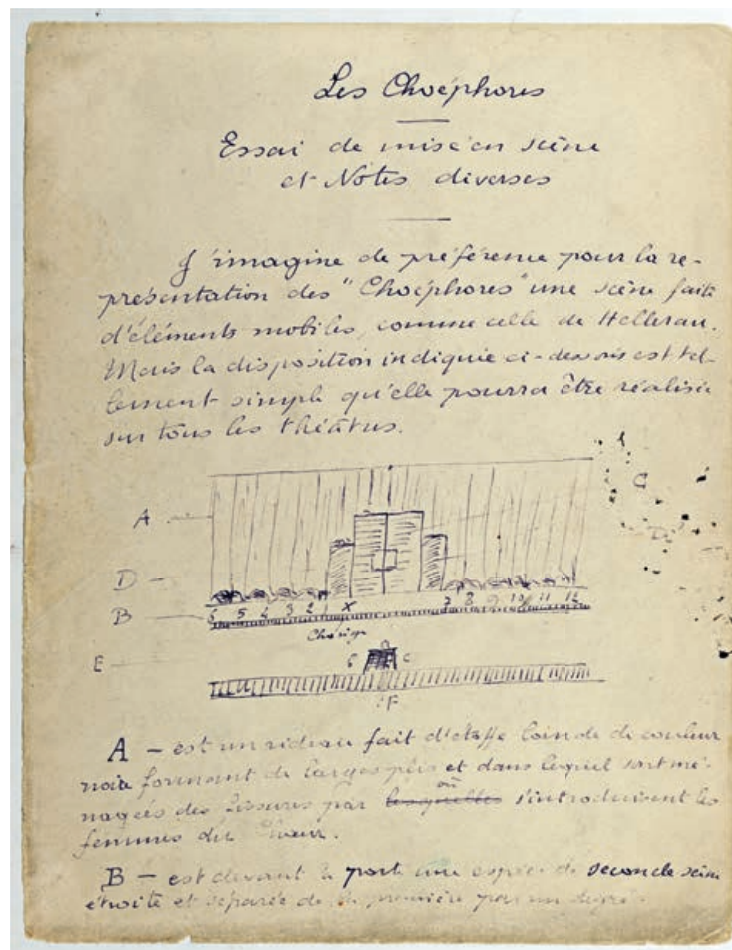 Les Choéphores
Essai de mise en scène
et Notes diverses
J'imagine de préférence pour la re-
présentation des "Choéphores" une scène faite
d'éléments mobiles, comme celle de Hellerau.
Mais la disposition indiquée ci-dessous est tel-
lement simple qu'elle pourra être réalisée
sur tous les théâtres.
A
C
D
B
6 5 4 3 2 1 X 7 8 9 10 11 12
E
6 C
F
A - est un rideau fait d'étoffe lourde de couleur
noire formant de larges plis et dans lequel sont mé-
où
nagées des fissures par lesquelles s'introduisent les
femmes du Chœur.
B - est devant la porte une espèce de seconde scène
étroite et séparée de la première par un degré.